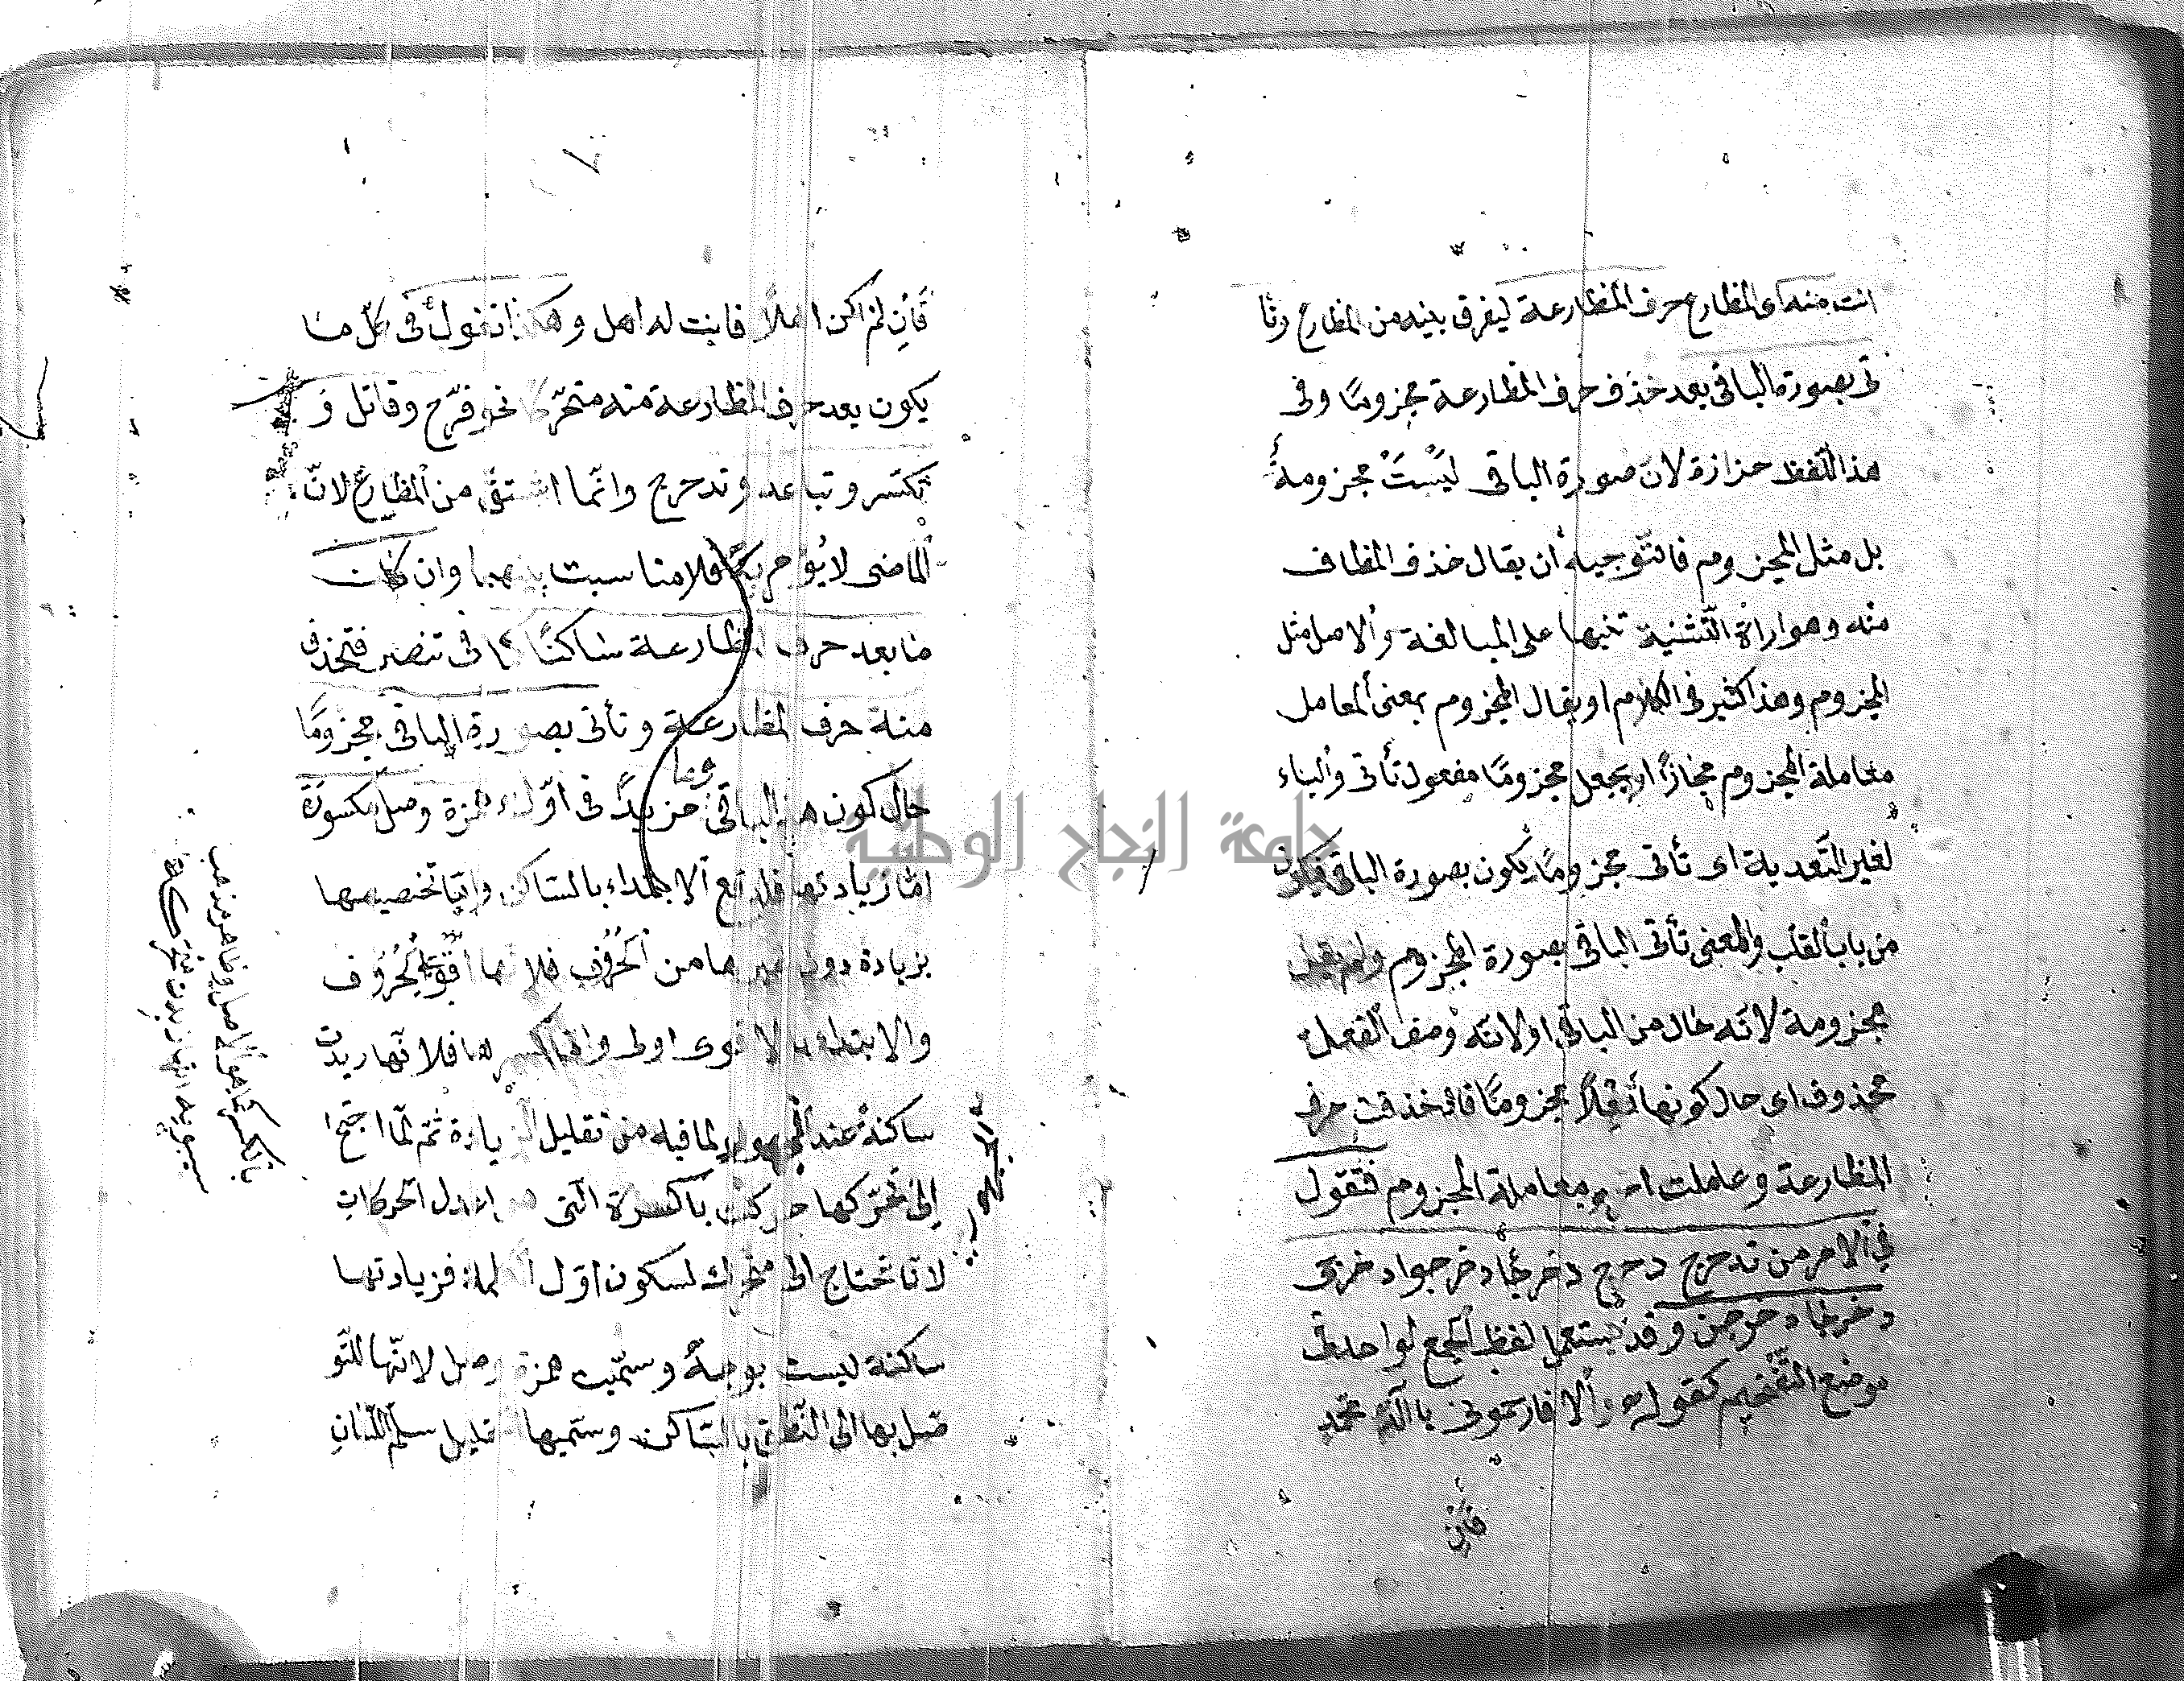 انت منه اى المظارع حرف المظارعة ليفرق بينه من المظارع وتأ
تى بصورة الباقى بعد خذف حرف المظارعة مجزومًا وفى
هذا اللفظ حزازة لان صورة الباقى ليْسَتْ مجزومةً
بل مثل المجزوم فالتّوجيه أن يقال خذف المظاف
منه وهو اراة التّشنية تنبيها على المبالغة والاصل مثل
المجزوم وهذا كثير فى الكلام او يقال المجزوم بمعنى المعامل
معاملة المجزوم مجازًا او يجعل مجزومًا مفعول تأتى والباء
لغير التّعدية اى تأتى مجزومًا يكون بصورة الباقى فيكون
من باب القلب والمعنى تأتى الباقى بصورة المجزوم ولم يقل
مجزومة لانّه حال من الباقى او لانّه وصف الفعل
محذوف اى حال كونها فعلاً مجزومًا فاذا خذفت حرف
المظارعة وعاملت معاملة المجزوم فتقول
فى الامر من تدحرج دحرج دحرجا دحرجوا دحرجى
دحرجا دحرجن وقد يستعمل لفظ الجمع لواحد فى
موضع التّفخيم كقوله الا فارحمونى يا آله محمد
فان
٧
فَاِن لمْ اكن اهلاً فانت له اهل وهكذا تقول فى كلّ ما
يكون بعد حرف المظارعة منه متحرّكًا نحو فرّح وقاتل و
تكسّر وتباعد وتدحرج وانّما اشتقّ من المظارع لانّ
الماضى لا يؤمر به فلا مناسبت بينهما وان كانت
ما بعد حرف المظارعة ساكنًا كما فى تنصر فتحذف
منه حرف المظارعة وتأتى بصورة الباقى مجزومًا
حال كون هذا الباقى مزيدًا فى اوّله همزة وصل مكسورة
امّا زيادتها فلدفع الابتداء بالسّاكن وامّا تخصيصها
بزيادة دون غيرها من الحُرُوف فلانّها اقوَى الحُرُوف
والابتداء بالاقوى اولى وامّا كسرها فلانّها زيدت
ساكنة عند الجمهور لما فيه من تقليل الزيادة ثمّ لمّا احتج
اِلى تحرّكها حركت باكسرة الّتى هى اعدل الحركات
لانّا نحتاج الى متحرك لسكون اوّل الكلمة فزيادتها
ساكنة ليست بوجهٍ وسمّيت همزة وصل لانّها للتّو
صّل بها الى النّطق بالسّاكن وسمّيها الخليل سلّم اللّسان
سيبويه انّها زيدت متحركة
بالكسر كما هو الاصل وظاهر مذهب